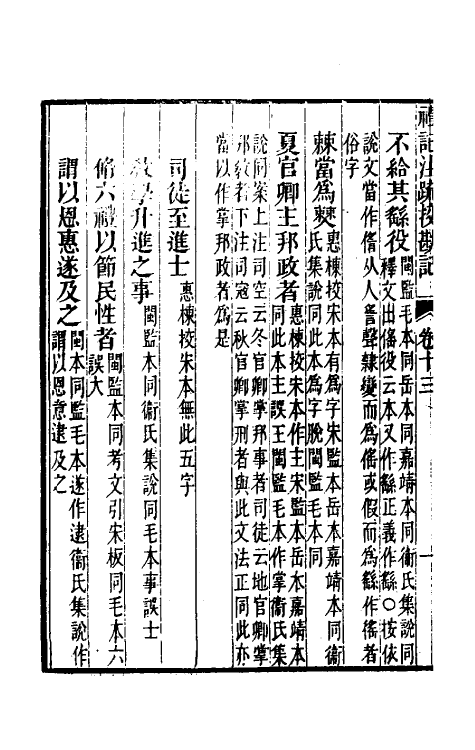 禮記注疏校勘記 卷十三 一
不給其繇役 閩監毛本同岳本同嘉靖本同衞氏集說同
釋文出傜役云本又作繇正義作繇○按依
說文當作㑾从人䚻聲隸變而爲傜或假而爲繇作徭者
俗字
棘當爲僰 惠棟校宋本有爲字宋監本岳本嘉靖本同衞
氏集說同此本爲字脫閩監毛本同
夏官卿主邦政者 惠棟校宋本作主宋監本岳本嘉靖本
同此本主誤王閩監毛本作掌衞氏集
說同案上注司空云冬官卿掌邦事者司徒云地官卿掌
邦敎者下注司寇云秋官卿掌刑者與此文法正同此亦
當以作掌邦政者爲是
司徒至進士 惠棟校宋本無此五字
敎學升進之事 閩監本同衞氏集說同毛本事誤士
脩六禮以節民性者 閩監本同考文引宋板同毛本六
誤大
謂以恩惠遂及之 閩本同監毛本遂作逮衞氏集說作
謂以恩意逮及之